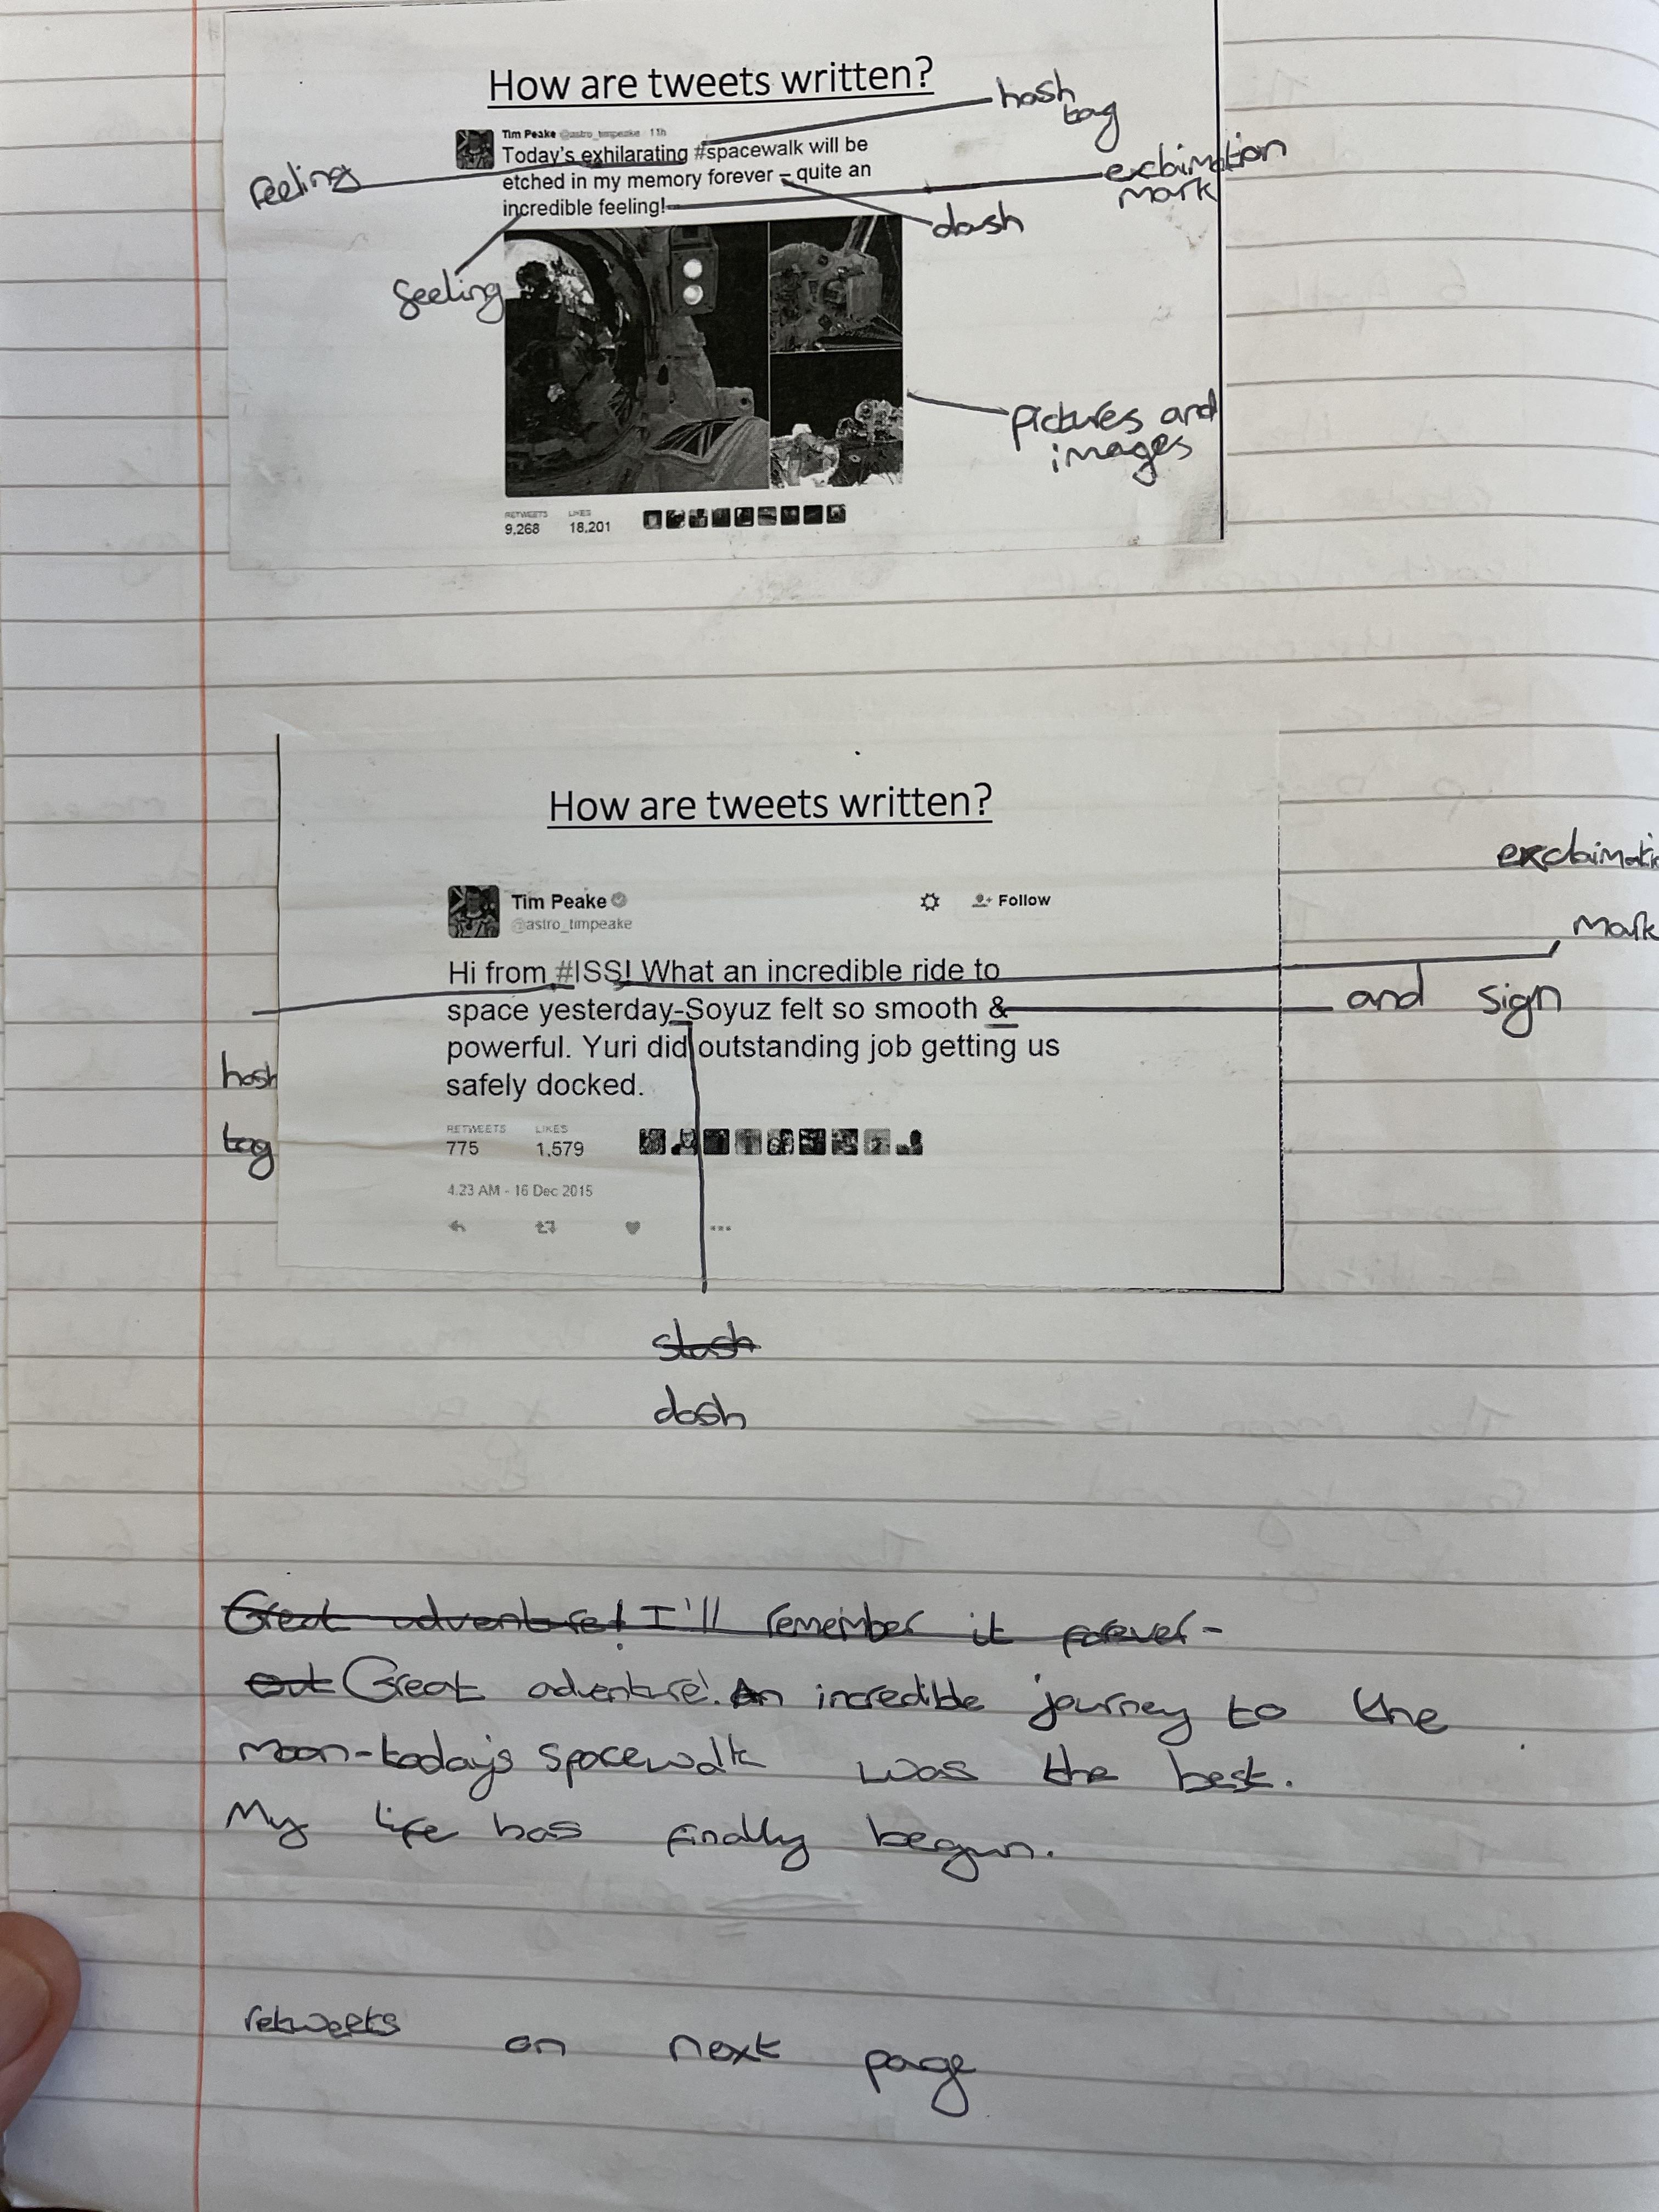 How are tweets written?
hash
tag
Tim Peake @astro_timpeake · 11h
Today's exhilarating #spacewalk will be
etched in my memory forever – quite an
incredible feeling!
feeling
exclaimation
mark
dash
feeling
pictures and
images
RETWEETS LIKES
9,268 18,201
How are tweets written?
exclaimatio
mark
Tim Peake
@astro_timpeake
Follow
Hi from #ISS! What an incredible ride to
space yesterday-Soyuz felt so smooth &
powerful. Yuri did outstanding job getting us
safely docked.
and sign
hash
tag
RETWEETS LIKES
775 1,579
4:23 AM - 16 Dec 2015
slash
dash
Great adventure! I'll remember it forever-
Out Great adventure! An incredible journey to the
moon-today's spacewalk was the best.
My life has finally begun.
retweets on next page